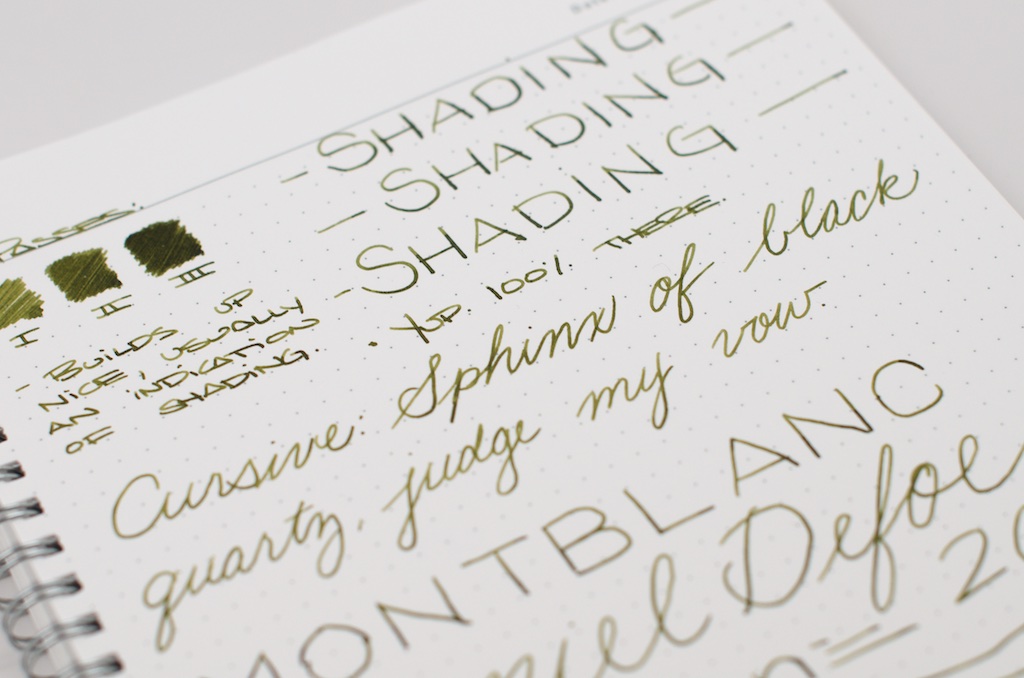 - SHADING -
- SHADING -
- SHADING -
Passes:
I II III
- BUILDS UP
NICE, USUALLY
AN INDICATION
OF SHADING.
. YUP. 100% THERE.
Cursive: Sphinx of black
quartz, judge my vow.
MONTBLANC
Defoe
20